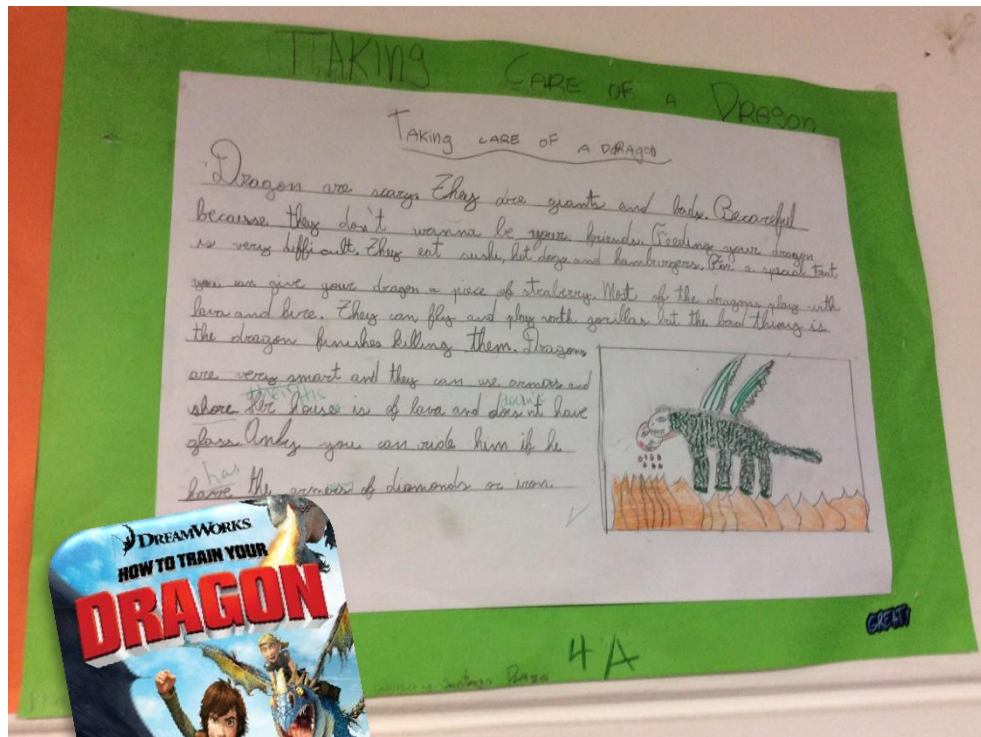 TTAKING CARE OF A DRAGON
TAKING CARE OF A DORAGOD
Dragon are scary. They are giants and bads. Becareful
because they don't wanna be your friends. Feeding your dragon
is very difficult. They eat sushi, hot dogs and hamburgers. For a special treat
you can give your dragon a piece of straberry. Most of the dragons play with
lava and fire. They can fly and play with gorillas but the bad thinng is
the dragon finishes killing them. Dragons
are very smart and they can use armors and
shore. Her house is of lava and does'nt have
doesn't
glass. Only you can ride him if he
has
have the armors of diamonds or iron.
DREAMWORKS
HOW TO TRAIN YOUR
DRAGON
GREAT!
4A
Santiago